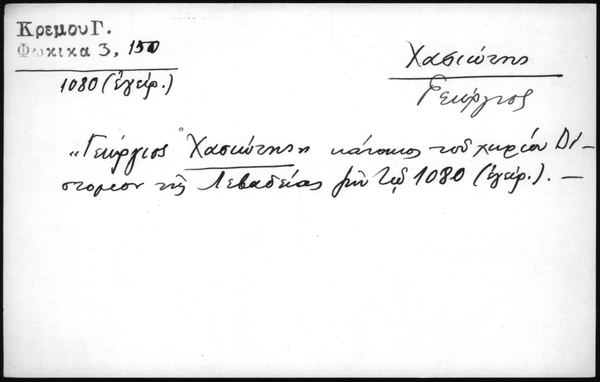 Κρεμου Γ.
Φωκικα 3, 150
1080 (ἐγείρ.)
Χασιώτης
Γεώργιος
„Γεώργιος Χασιώτης κάτοικος τοῦ χωρίου Δί-
στομον τῆς Λεβαδείας 1080 (ἐγείρ.). —